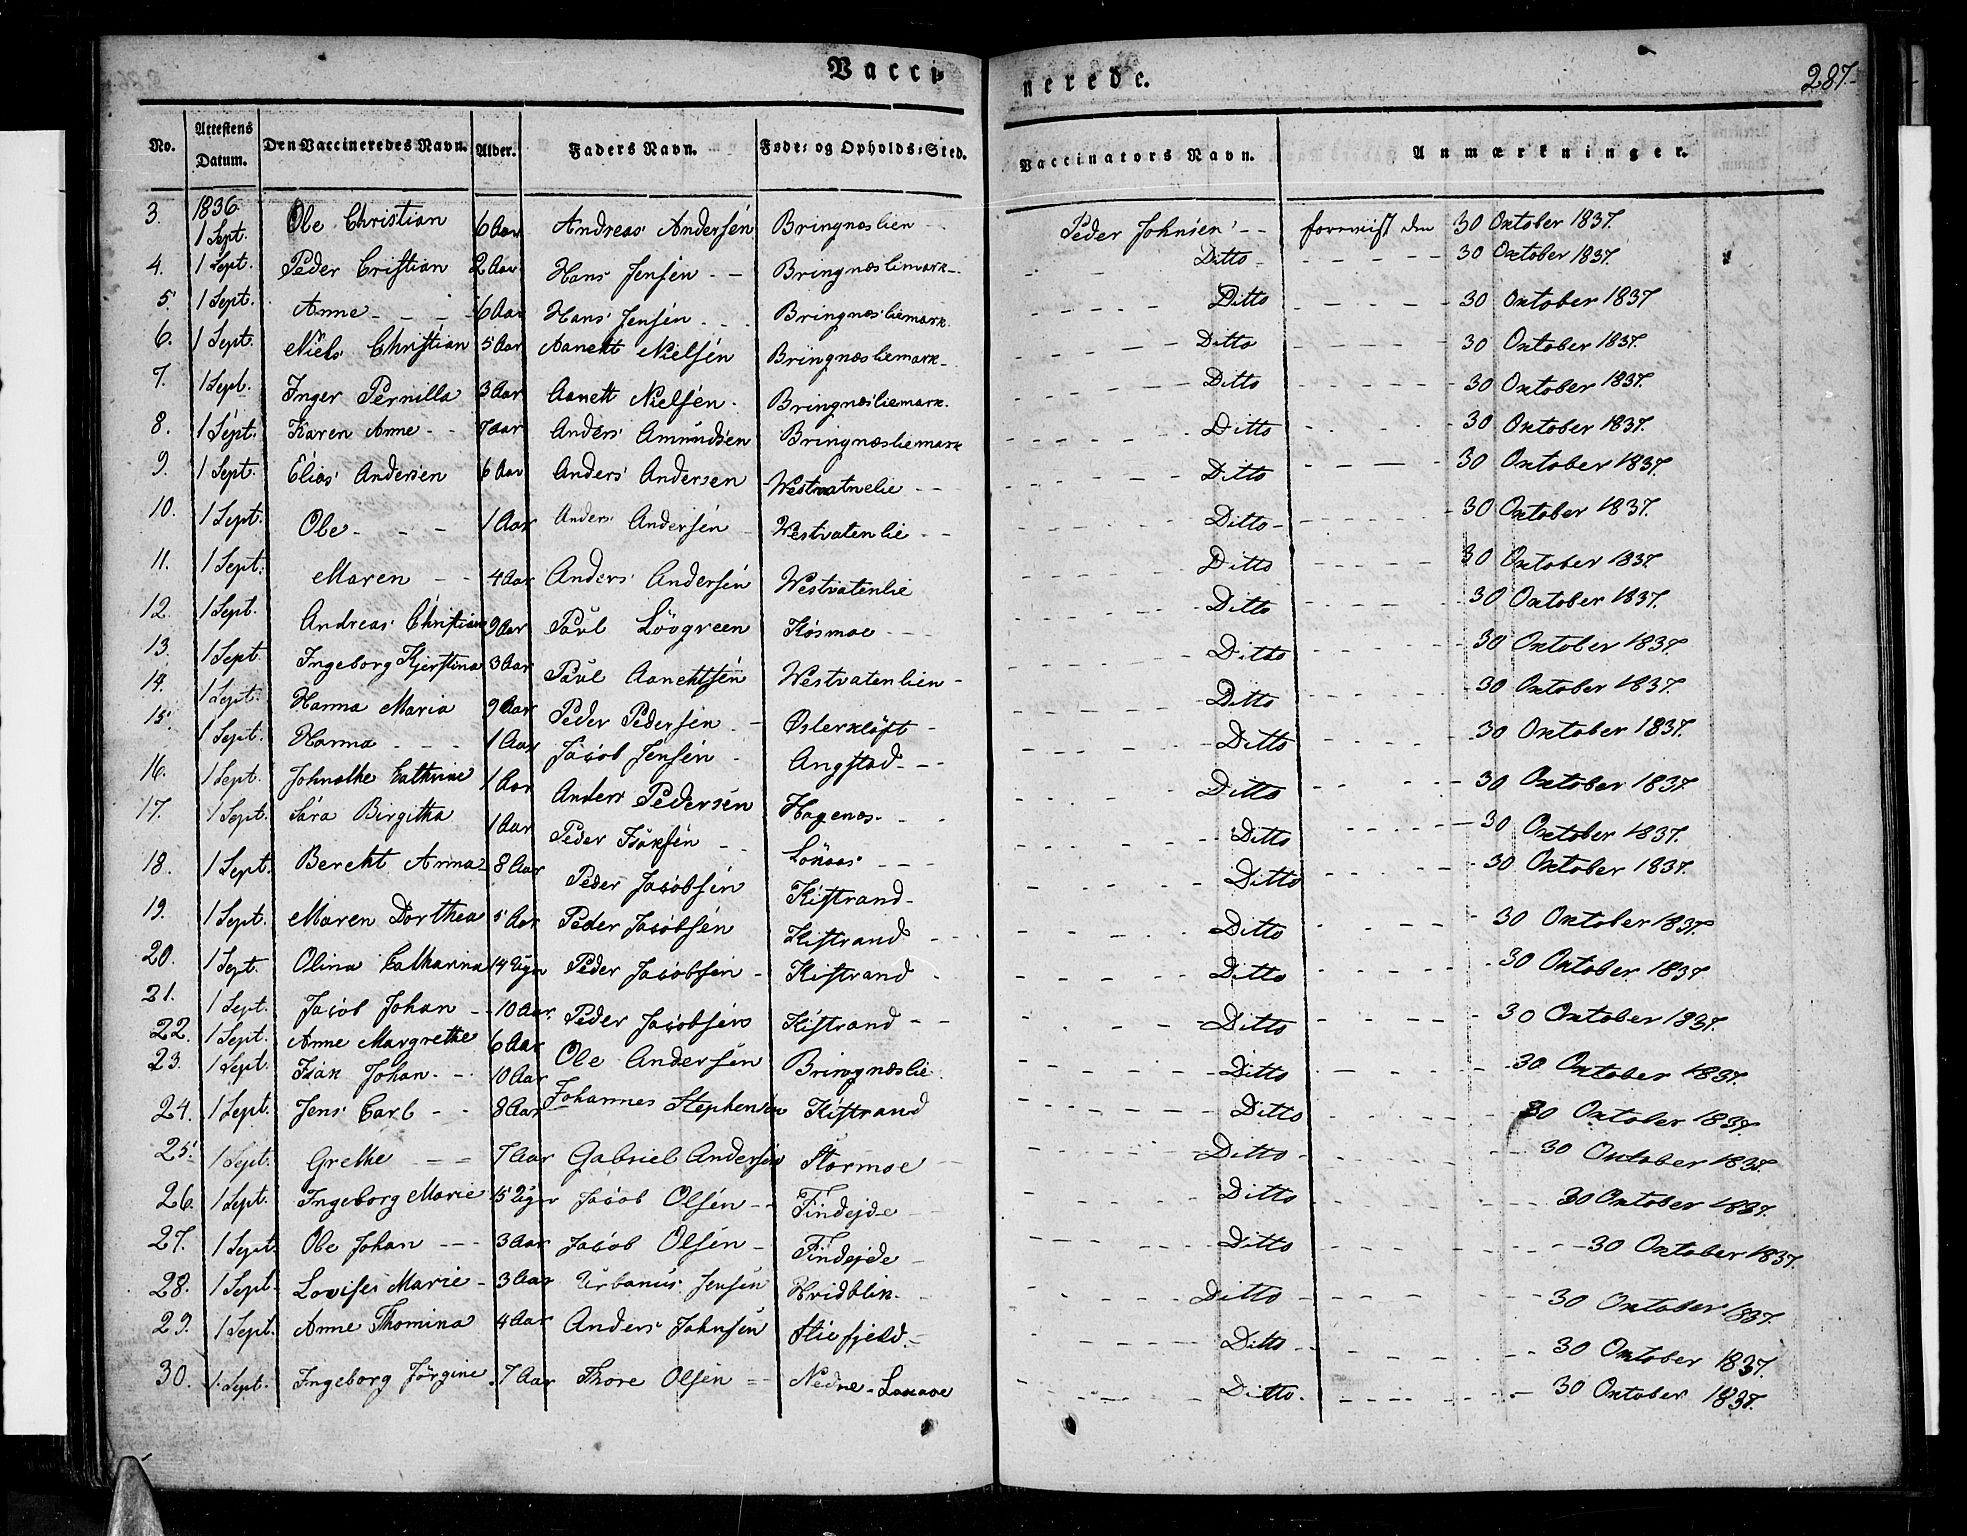 Vaccinerede.
287.
No. | Attestens Datum. | Den Vaccineredes Navn. | Alder. | Faders Navn. | Føde- og Opholds-Sted. | Vaccinators Navn. | Anmærkninger.
3. | 1836 1 Sept. | Ole Christian | 6 Aar | Andreas Andersen | Bringnæslien | Peder Johnsen | foreviist den 30 October 1837.
4. | 1 Sept. | Peder Cristian | 2 Aar | Hans Jensen | Bringnæsliemark | Ditto | 30 October 1837.
5 | 1 Sept. | Anne | 6 Aar | Hans Jensen | Bringnæsliemark. | Ditto | 30 October 1837
6. | 1 Sept. | Niels Christian | 5 Aar | Aanett Nielsen | Bringnæsliemark | Ditto | 30 October 1837.
7. | 1 Sept. | Inger Pernilla | 3 Aar | Aanett Nielsen | Bringnæsliemark. | Ditto | 30 October 1837.
8. | 1 Sept. | Karen Anne | 7 Aar | Anders Amundsen | Bringnæsliemark | Ditto | 30 October 1837.
9. | 1 Sept. | Elias Andersen | 6 Aar | Anders Andersen | Westvatnelie | Ditto | 30 October 1837.
10. | 1 Sept. | Ole | 1 Aar | Anders Andersen | Westvatenlie | Ditto | 30 October 1837.
11. | 1 Sept. | Maren | 4 Aar | Anders Andersen | Westvatenlie | Ditto | 30 October 1837
12. | 1 Sept. | Andreas Christian | 9 Aar | Paul Lövgreen | Kosmoe | Ditto | 30 October 1837.
13. | 1 Sept. | Ingeborg Kjerstina | 3 Aar | Paul Aanettsen | Westvatenlien | Ditto | 30 October 1837.
14. | 1 Sept. | Hanna Maria | 9 Aar | Peder Pedersen | Østerkløft | Ditto | 30 October 1837.
15. | 1 Sept. | Hanna | 1 Aar | Jacob Jensen | Angstad | Ditto | 30 October 1837.
16. | 1 Sept. | Johnethe Cathrine | 1 Aar | Anders Pedersen | Hagenæs | Ditto | 30 October 1837.
17. | 1 Sept. | Sara Birgitha | 1 Aar | Peder Isaksen | Lönaas | Ditto | 30 October 1837.
18. | 1 Sept. | Bereht Anna | 8 Aar | Peder Jacobsen | Kistrand | Ditto | 30 October 1837.
19. | 1 Sept. | Maren Dorthea | 5 Aar | Peder Jacobsen | Kistrand | Ditto | 30 October 1837.
20. | 1 Sept. | Olina Catharina | 14 Uger | Peder Jacobsen | Kistrand | Ditto | 30 October 1837
21. | 1 Sept. | Jacob Johan | 10 Aar. | Peder Jacobsen | Kistrand | Ditto | 30 October 1837.
22. | 1 Sept. | Anne Margrethe | 6 Aar | Ole Andersen | Bringnæslie | Ditto | 30 October 1837.
23. | 1 Sept. | Isak Johan | 10 Aar | Johannes Stephensen | Kistrand | Ditto | 30 October 1837.
24. | 1 Sept. | Jens Carl | 8 Aar | Gabriel Andersen | Stormoe | Ditto | 30 October 1837.
25. | 1 Sept. | Grethe | 7 Aar | Ditto
26. | 1 Sept. | Ingeborg Marie | 15 Uger | Jacob Olsen | Findejde | Ditto | 30 October 1837.
27. | 1 Sept. | Ole Johan | 3 Aar | Jacob Olsen | Findejde | Ditto | 30 October 1837.
28. | 1 Sept. | Lovise Marie | 3 Aar | Urbanus Jensen | Hvidblik | Ditto | 30 October 1837.
29. | 1 Sept. | Anne Thomina | 4 Aar | Anders Johnsen | Ditto | 30 October 1837.
30. | 1 Sept. | Ingeborg Jörgine | 7 Aar | Thore Olsen | Nedne | Ditto | 30 October 1837.